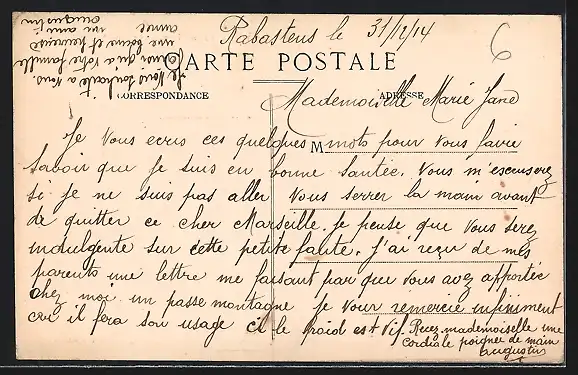 Rabastens le 31/12/14
6
CARTE POSTALE
CORRESPONDANCE
ADRESSE
M
Mademoiselle Marie Jane
Je vous ecris ces quelques mots pour vous faire
savoir que je suis en bonne santée. Vous m'escuserez
si je ne suis pas aller vous serrer la main avant
de quitter ce cher Marseille. je pense que vous serez
indulgente sur cette petite faute. J'ai reçu de mes
parents une lettre me faisant par que vous avez apportée
chez moi un passe montagne je vous remercie infiniment
car il fera son usage ci le froid est vif. Recez mademoiselle une
cordiale poignee de main
Augustin
Je vous souhaite a vous
ainsi qu'a votre famille
une bonne et heureuse
année un ami
Augustin